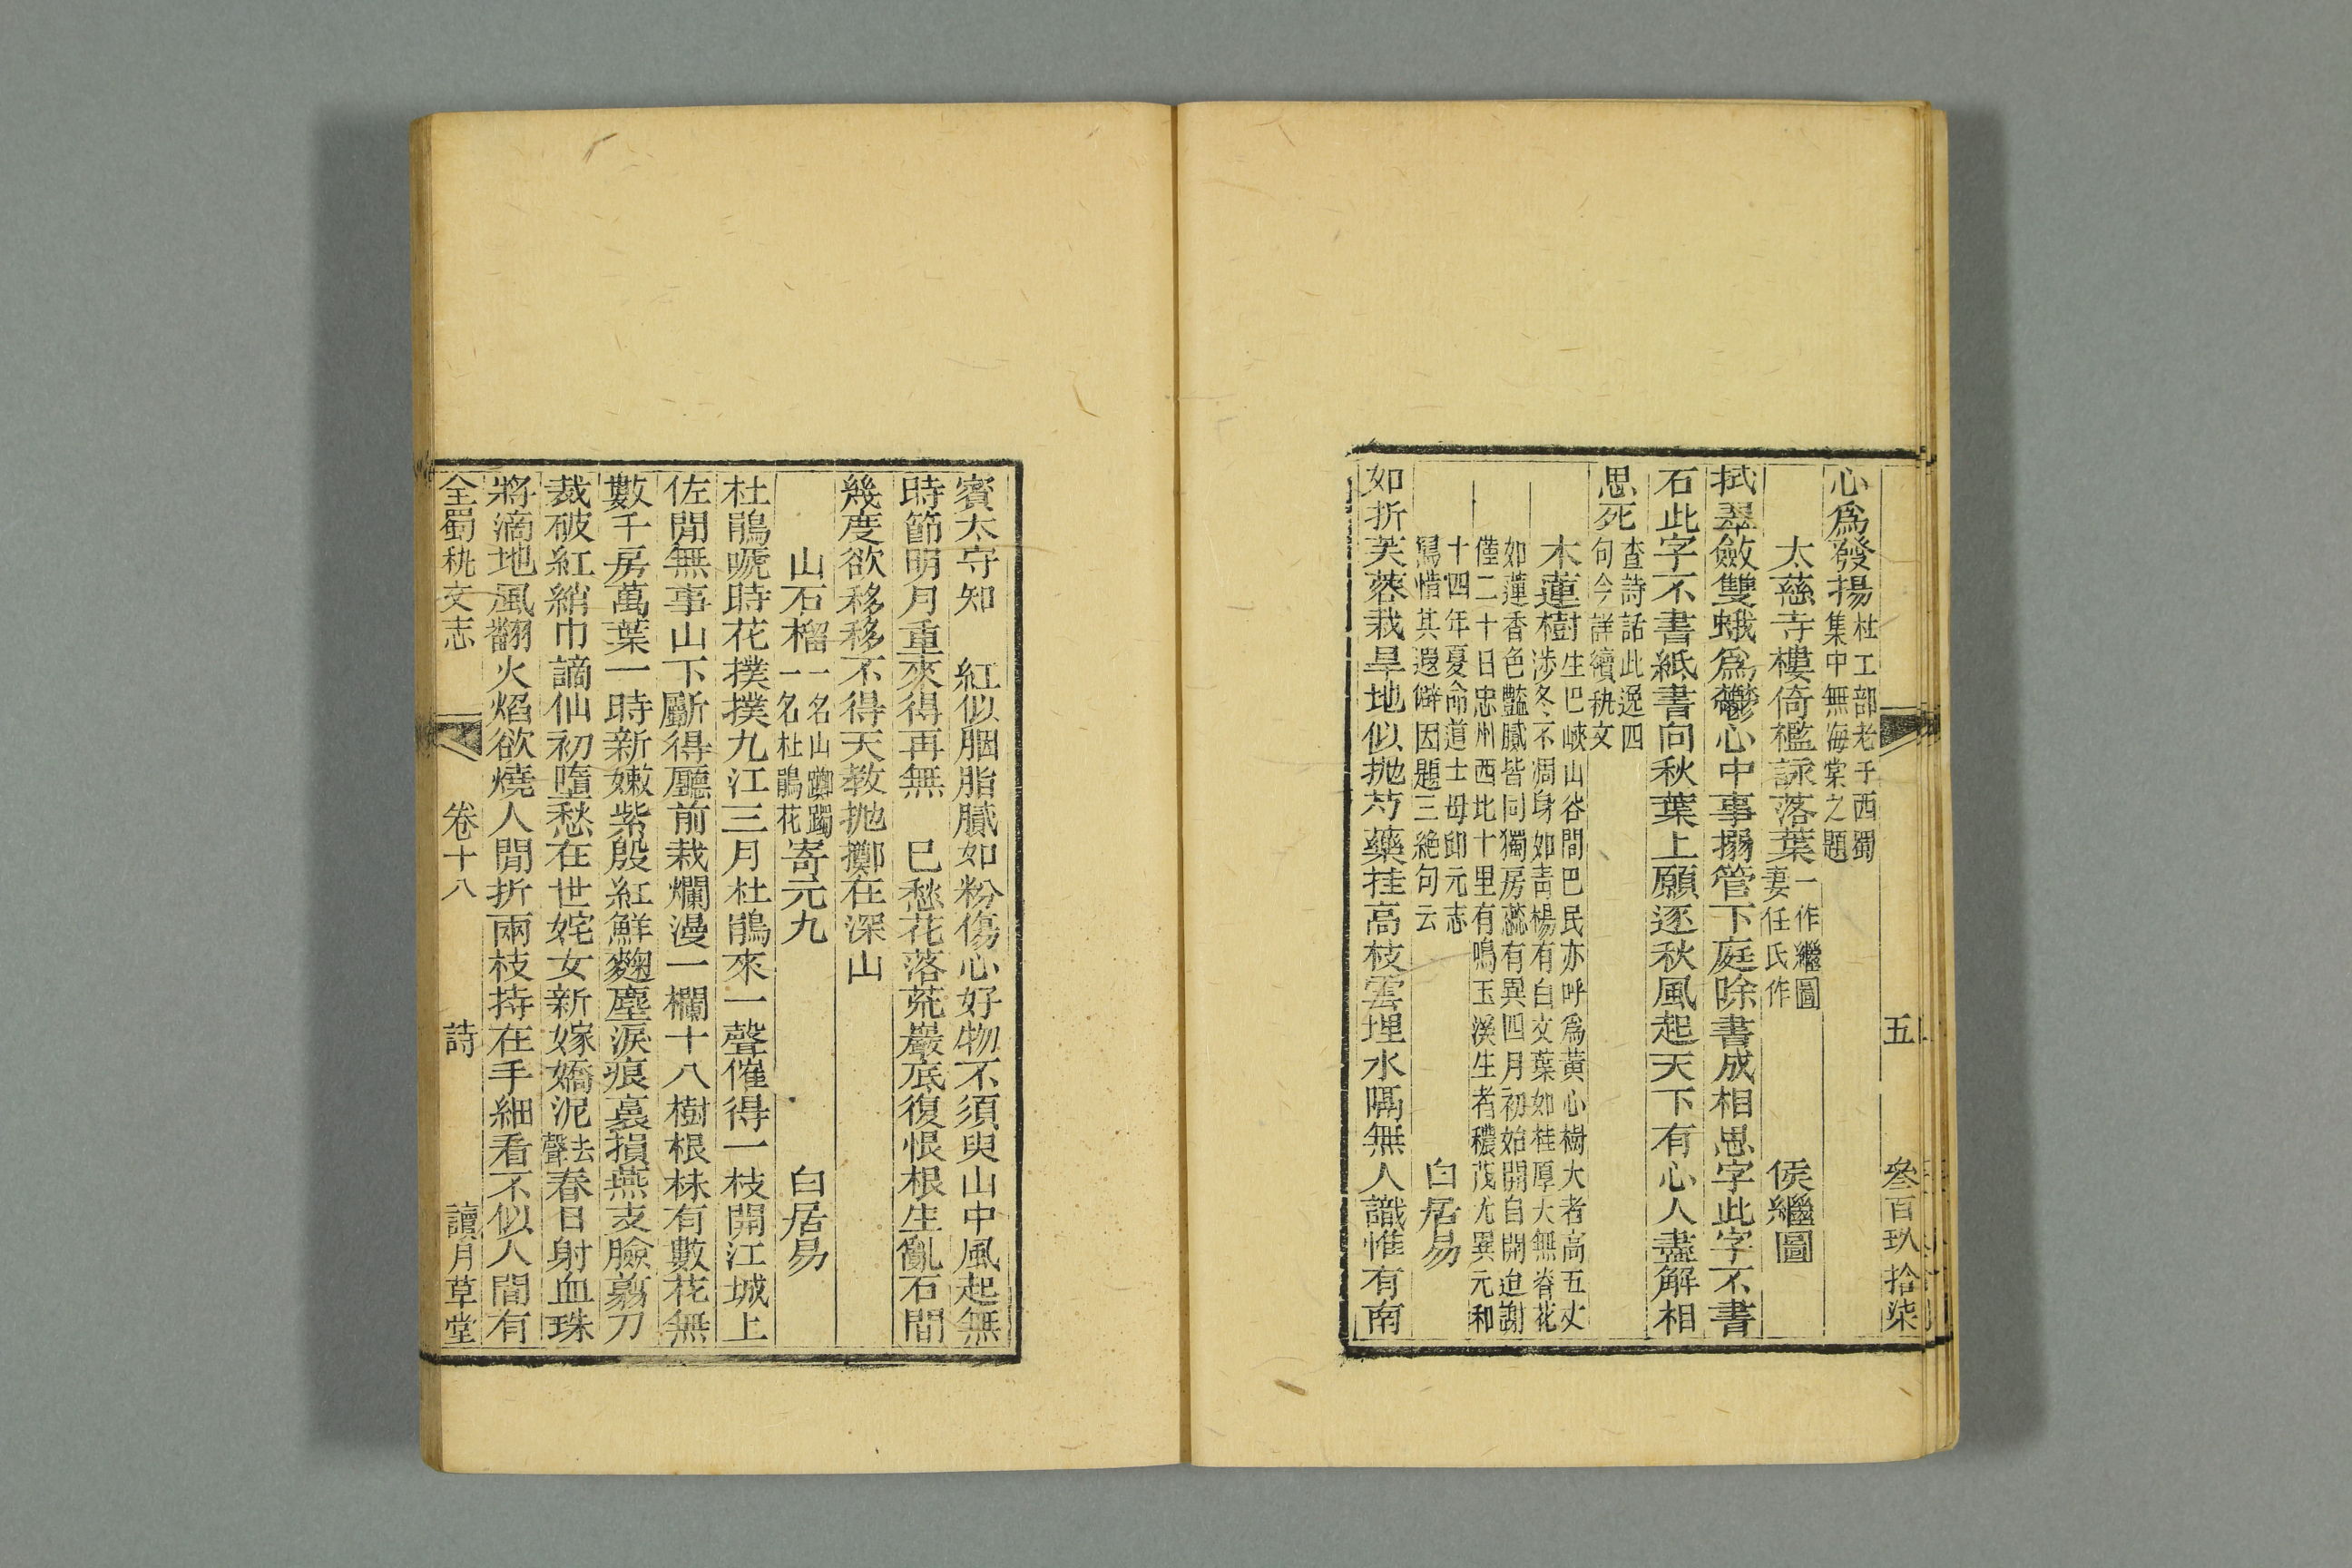 五　叁百玖拾柒
心爲發揚杜工部老于西蜀集中無海棠之題
太慈寺樓倚檻詠落葉一作繼圖妻任氏作　侯繼圖
拭翠斂雙蛾爲鬱心中事搦管下庭除書成相思字此字不書
石此字不書紙書向秋葉上願逐秋風起天下有心人盡解相
思死查詩話此逸四句今詳續秇文
木蓮樹生巴峽山谷間巴民亦呼爲黃心樹大者高五丈
涉冬不凋身如靑楊有白文葉如桂厚大無脊花
如蓮香色豔膩皆同獨房蕊有異四月初始開自開迨謝
僅二十日忠州西北十里有鳴玉溪生者穠茂尤異元和
十四年夏命道士母邱元志
寫惜其遐僻因題三絶句云　白居易
如折芙蓉栽旱地似抛芍藥挂高枝雲埋水隔無人識惟有南
賓太守知　紅似胭脂膩如粉傷心好物不須臾山中風起無
時節明月重來得再無　已愁花落荒巖底復恨根生亂石間
幾度欲移移不得天教抛擲在深山
山石榴一名山躑躅一名杜鵑花寄元九　白居易
杜鵑嗁時花撲撲九江三月杜鵑來一聲催得一枝開江城上
佐閒無事山下斸得廳前栽爛漫一欄十八樹根株有數花無
數千房萬葉一時新嫩紫殷紅鮮麴塵淚痕裛損燕支臉翦刀
裁破紅綃巾謫仙初墮愁在世姹女新嫁嬌泥去聲春日射血珠
將滴地風翻火焰欲燒人閒折兩枝持在手細看不似人間有
全蜀秇文志　卷十八　詩　讀月草堂